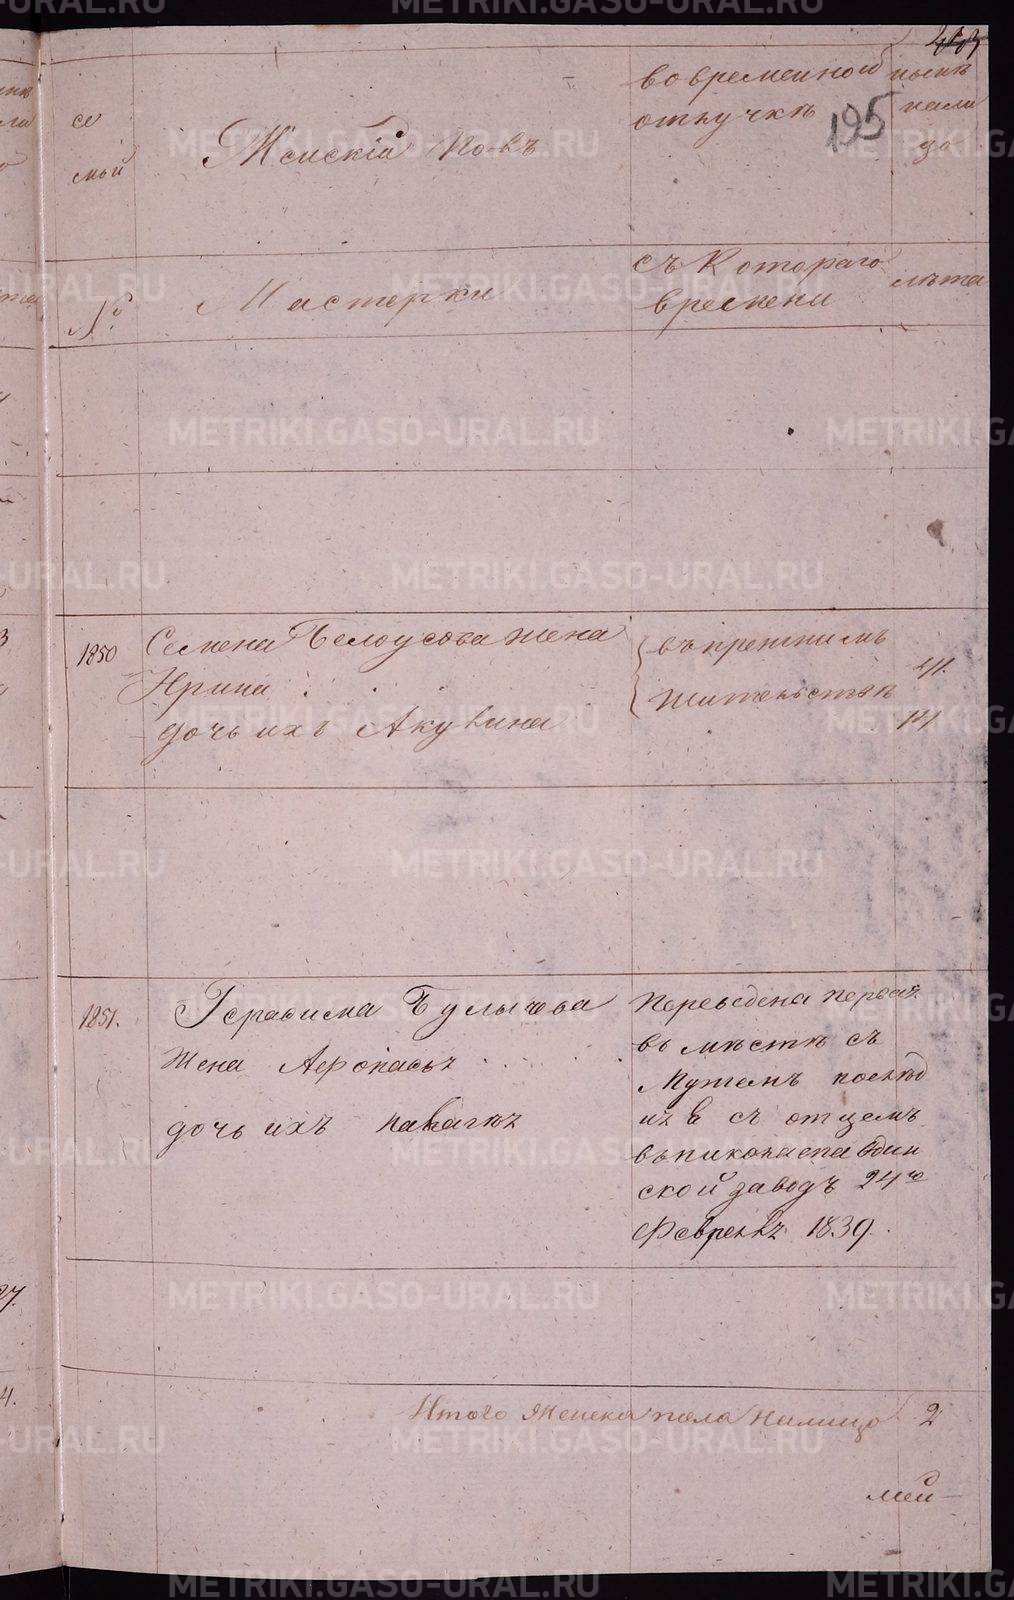 195
се
мьи
Женскій Полъ
во временной
отлучкѣ
нынѣ
нали
цо
№
Мастерки
съ котораго
времени
лѣта
1850
Семена Белоусова жена
Ирина
дочь ихъ Акулина
въ прежнимъ
жительствѣ
41.
14
1851.
Герасима Булычева
жена Афонасья
дочь ихъ Палагѣя
Переведена первая
вместѣ съ
мужемъ послѣд
няя съ отцемъ
ской заводъ 24го
Февраля 1839.
Итого женска пола налицо 2
мей
METRIKI.GASO-URAL.RU